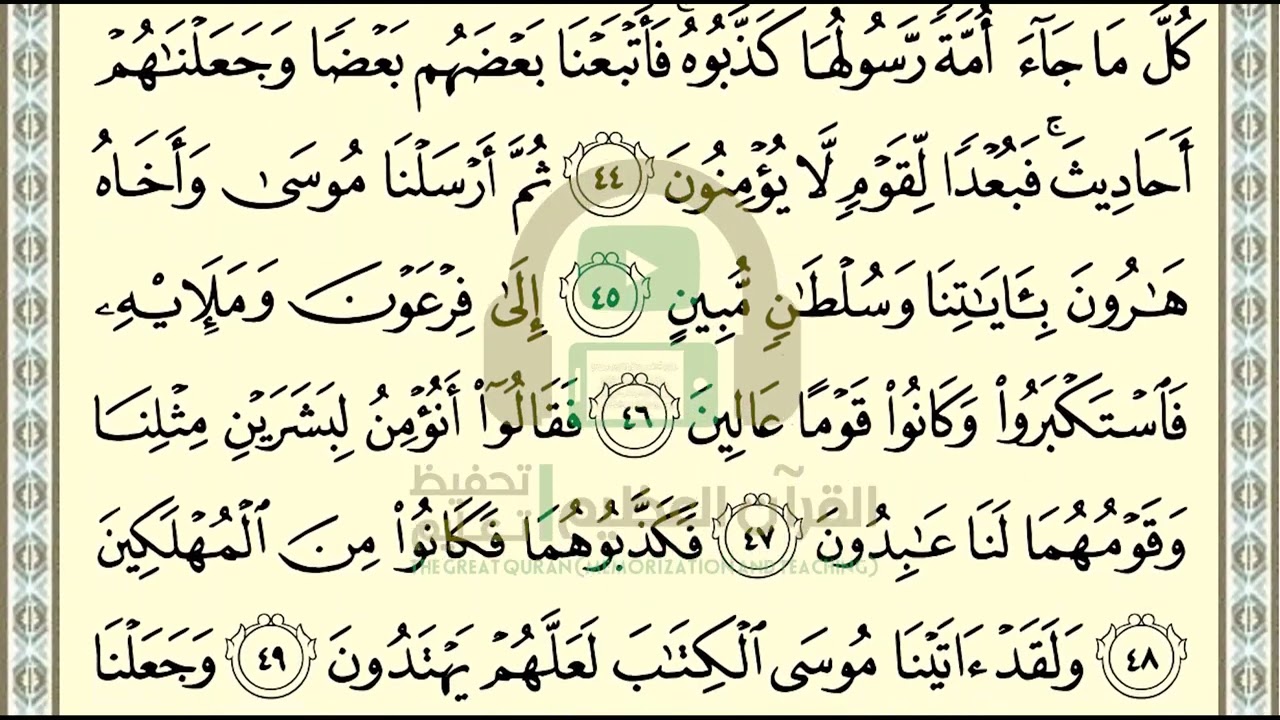 كُلَّ مَا جَآءَ أُمَّةً رَّسُولُهَا كَذَّبُوهُ فَأَتۡبَعۡنَا بَعۡضَهُم بَعۡضًا وَجَعَلۡنَٰهُمۡ
أَحَادِيثَۚ فَبُعۡدًا لِّقَوۡمٍ لَّا يُؤۡمِنُونَ ٤٤ ثُمَّ أَرۡسَلۡنَا مُوسَىٰ وَأَخَاهُ
هَٰرُونَ بِـَٔايَٰتِنَا وَسُلۡطَٰنٍ مُّبِينٍ ٤٥ إِلَىٰ فِرۡعَوۡنَ وَمَلَإِيْهِۦ
فَٱسۡتَكۡبَرُواْ وَكَانُواْ قَوۡمًا عَالِينَ ٤٦ فَقَالُوٓاْ أَنُؤۡمِنُ لِبَشَرَيۡنِ مِثۡلِنَا
وَقَوۡمُهُمَا لَنَا عَٰبِدُونَ ٤٧ فَكَذَّبُوهُمَا فَكَانُواْ مِنَ ٱلۡمُهۡلَكِينَ
٤٨ وَلَقَدۡ ءَاتَيۡنَا مُوسَى ٱلۡكِتَٰبَ لَعَلَّهُمۡ يَهۡتَدُونَ ٤٩ وَجَعَلۡنَا
القرآن العظيم تحفيظ
THE GREAT QURAN (MEMORIZATION AND TEACHING)